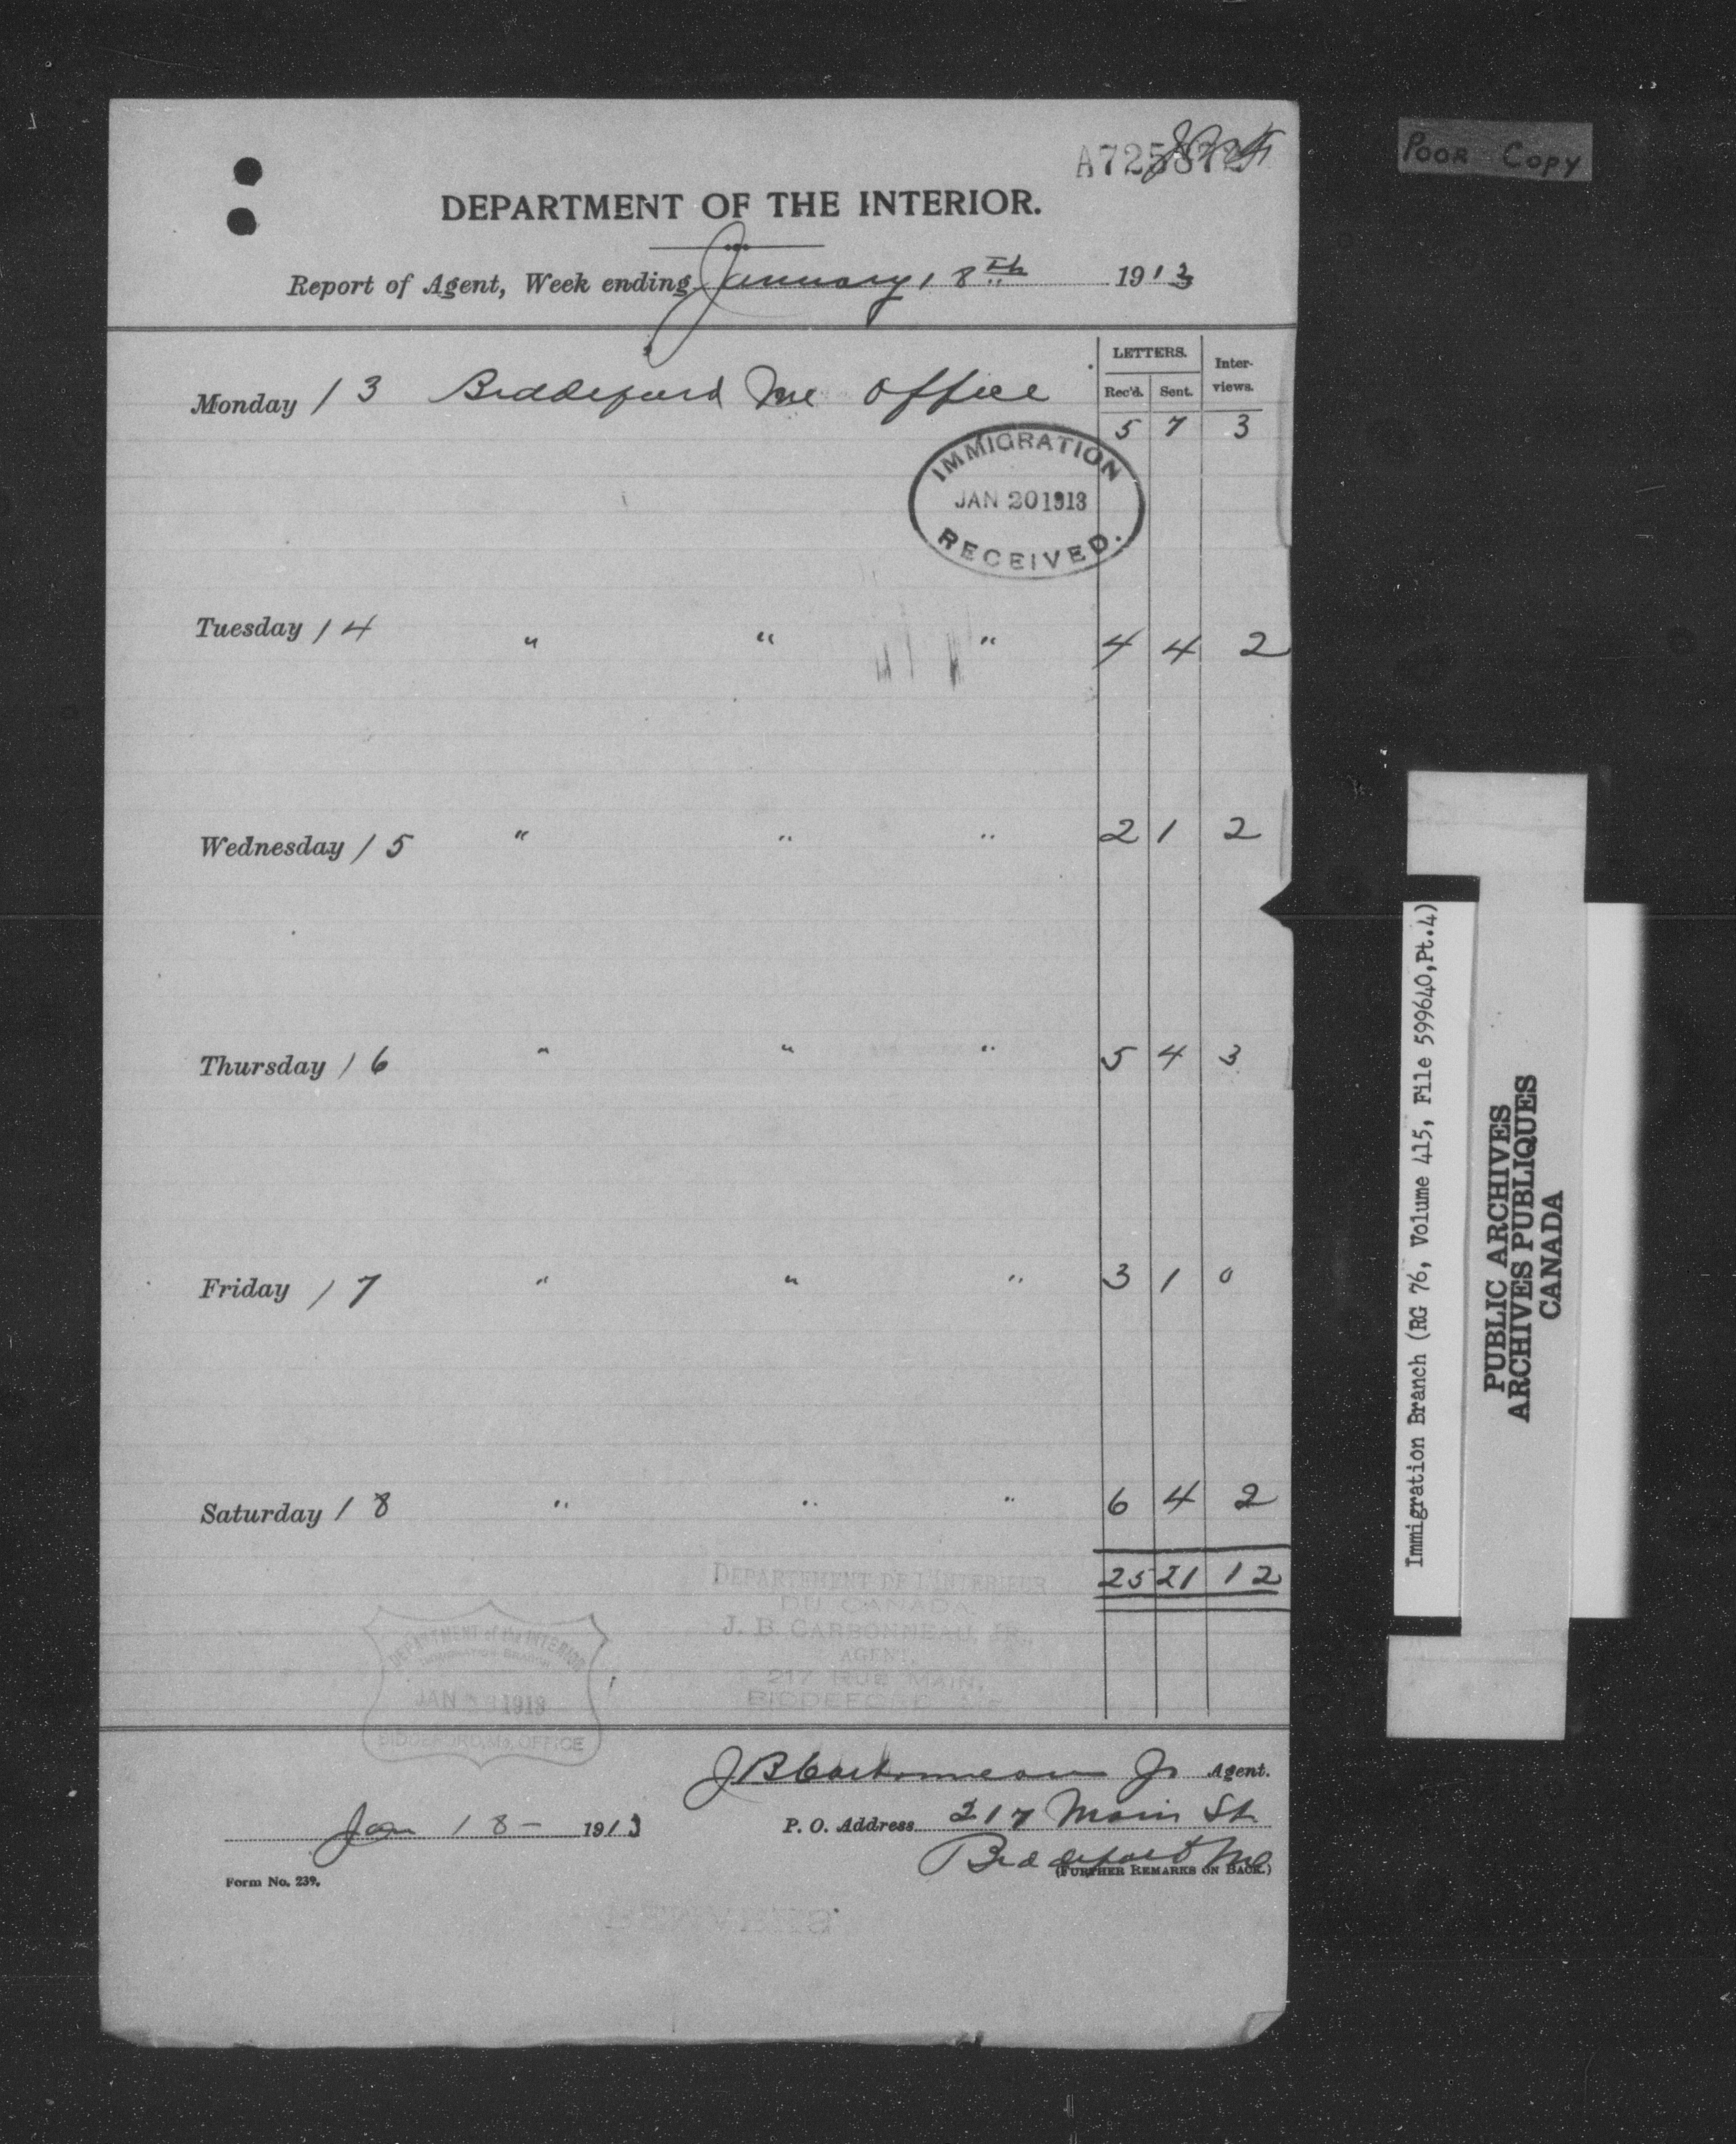 POOR COPY
DEPARTMENT OF THE INTERIOR.
Report of Agent, Week ending January 18th 1913
LETTERS. Inter-views.
Rec'd. Sent.
Monday 13 Biddeford Me Office 5 7 3
IMMIGRATION
JAN 20 1913
RECEIVED.
Tuesday 14 " " " 4 4 2
Wednesday 15 " " " 2 1 2
Thursday 16 " " " 5 4 3
Friday 17 " " " 3 1 0
Saturday 18 " " " 6 4 2
25 21 12
DEPARTEMENT DE L'INTERIEUR
DU CANADA.
J. B. CARBONNEAU, JR.,
AGENT,
217 RUE MAIN,
BIDDEFORD, ME
DEPARTMENT of the INTERIOR
IMMIGRATION BRANCH
JAN 1913
BIDDEFORD, Me. OFFICE
J B Carbonneau Jr Agent.
Jan 18 - 1913 P. O. Address 217 Main St
Biddeford Me
(FURTHER REMARKS ON BACK.)
Form No. 239.
REMARKS.
Immigration Branch (RG 76, Volume 415, File 599640,Pt.4)
PUBLIC ARCHIVES
ARCHIVES PUBLIQUES
CANADA